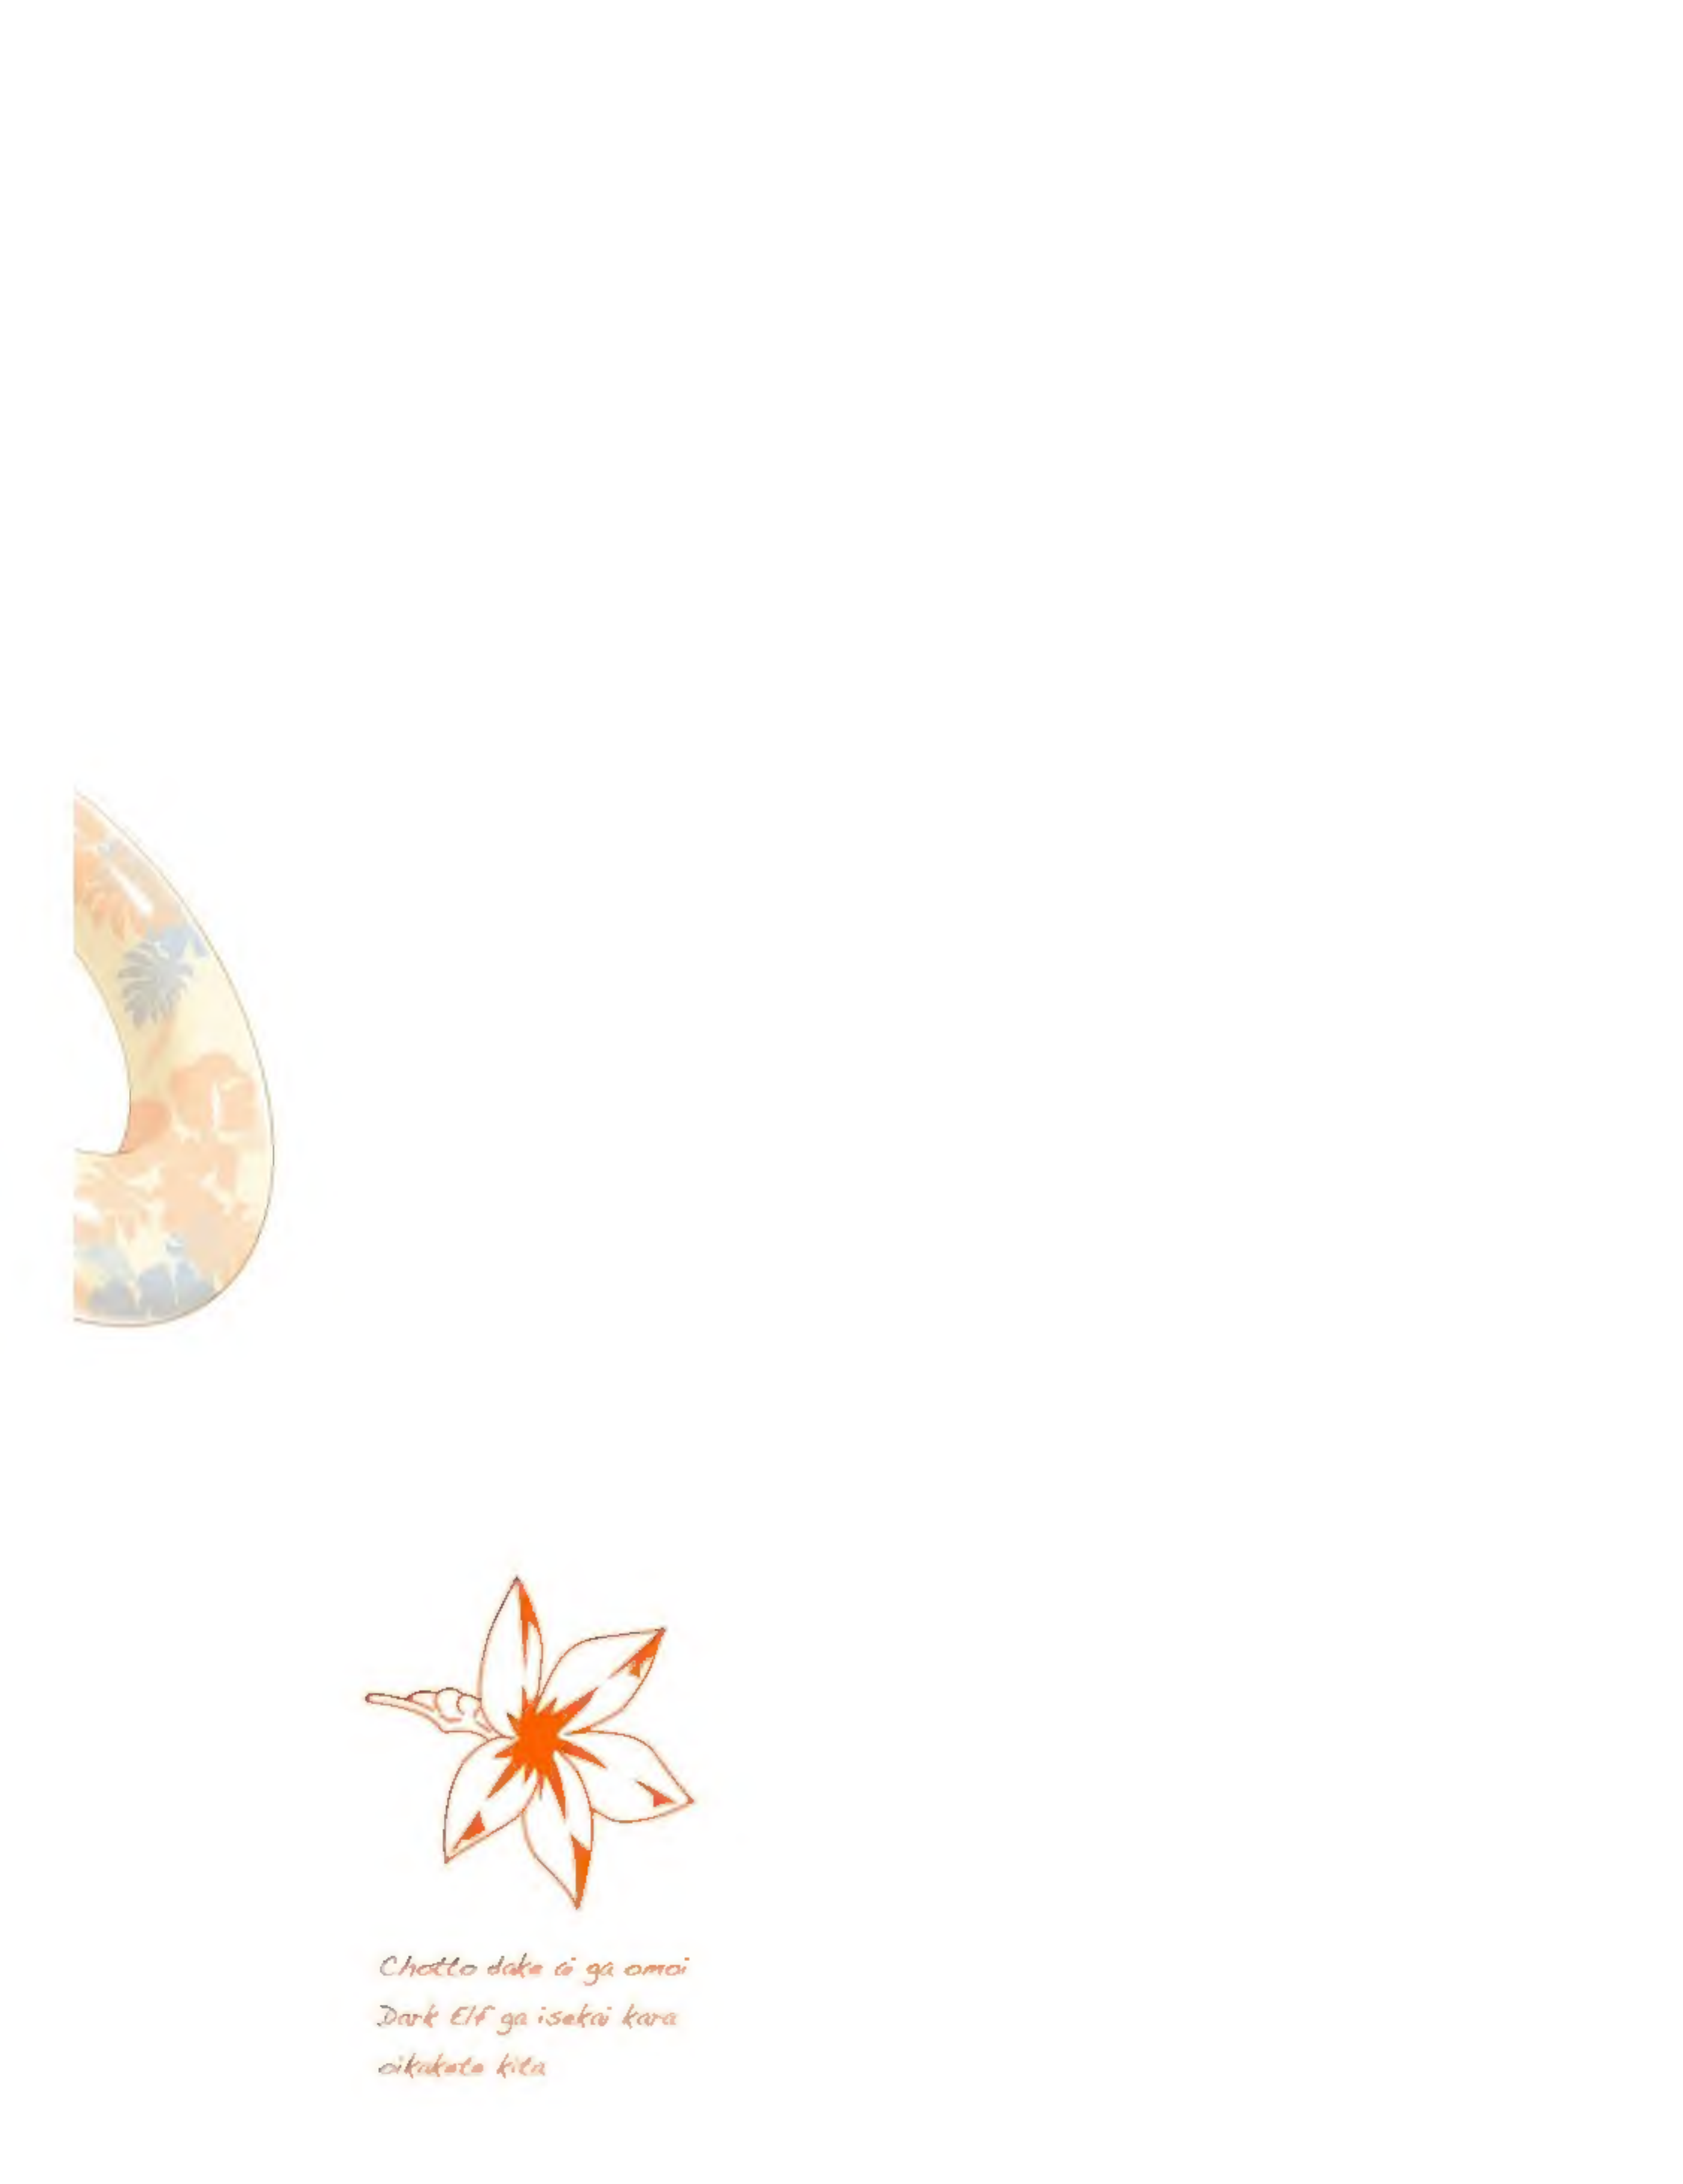 Chotto dake ai ga omoi
Dark Elf ga isekai kara
oikakete kita